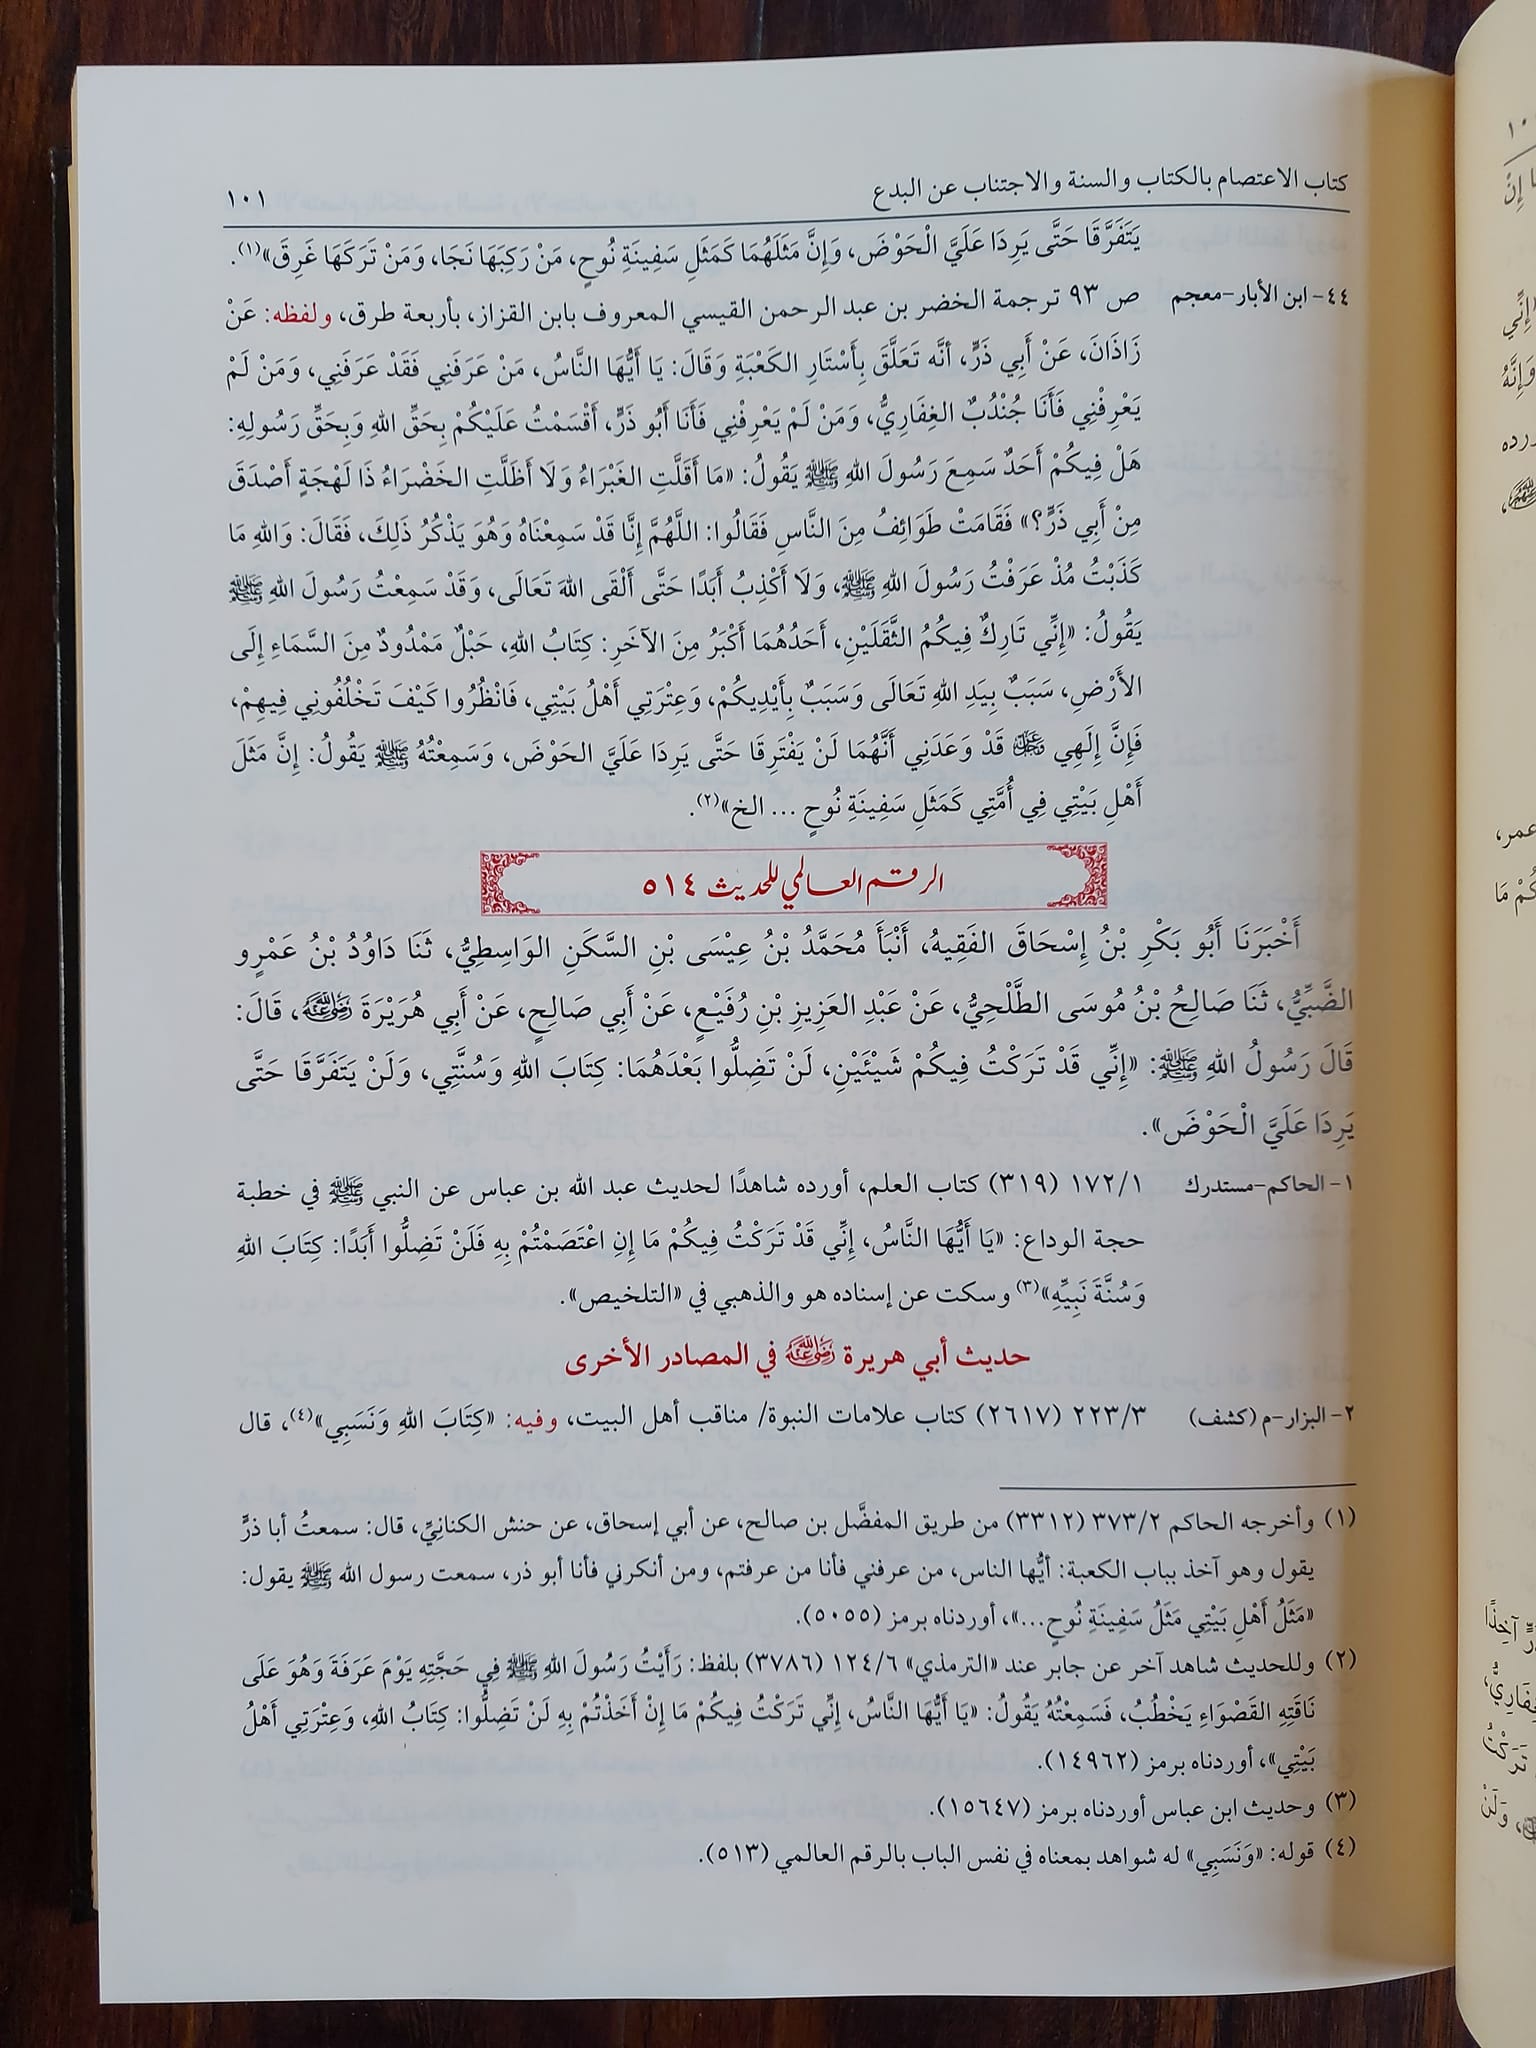 كتاب الاعتصام بالكتاب والسنة والاجتناب عن البدع ١٠١
يَتَفَرَّقَا حَتَّى يَرِدَا عَلَيَّ الْحَوْضَ، وَإِنَّ مَثَلَهُمَا كَمَثَلِ سَفِينَةِ نُوحٍ، مَنْ رَكِبَهَا نَجَا، وَمَنْ تَرَكَهَا غَرِقَ»(١).
٤٤- ابن الأبار-معجم ص ٩٣ ترجمة الخضر بن عبد الرحمن القيسي المعروف بابن القزاز، بأربعة طرق، ولفظه: عَنْ
زَاذَانَ، عَنْ أَبِي ذَرٍّ، أنَّه تَعَلَّقَ بِأَسْتَارِ الكَعْبَةِ وَقَالَ: يَا أَيُّهَا النَّاسُ، مَنْ عَرَفَنِي فَقَدْ عَرَفَنِي، وَمَنْ لَمْ
يَعْرِفْنِي فَأَنَا جُنْدُبٌ الغِفَارِيُّ، وَمَنْ لَمْ يَعْرِفْنِي فَأَنَا أَبُو ذَرٍّ، أَقْسَمْتُ عَلَيْكُمْ بِحَقِّ اللهِ وَبِحَقِّ رَسُولِهِ:
هَلْ فِيكُمْ أَحَدٌ سَمِعَ رَسُولَ اللهِ ﷺ يَقُولُ: «مَا أَقَلَّتِ الغَبْرَاءُ وَلَا أَظَلَّتِ الخَضْرَاءُ ذَا لَهْجَةٍ أَصْدَقَ
مِنْ أَبِي ذَرٍّ؟» فَقَامَتْ طَوَائِفُ مِنَ النَّاسِ فَقَالُوا: اللَّهُمَّ إِنَّا قَدْ سَمِعْنَاهُ وَهُوَ يَذْكُرُ ذَلِكَ، فَقَالَ: وَاللهِ مَا
كَذَبْتُ مُذْ عَرَفْتُ رَسُولَ اللهِ ﷺ، وَلَا أَكْذِبُ أَبَدًا حَتَّى أَلْقَى اللهَ تَعَالَى، وَقَدْ سَمِعْتُ رَسُولَ اللهِ ﷺ
يَقُولُ: «إِنِّي تَارِكٌ فِيكُمُ الثَّقَلَيْنِ، أَحَدُهُمَا أَكْبَرُ مِنَ الآخَرِ: كِتَابُ اللهِ، حَبْلٌ مَمْدُودٌ مِنَ السَّمَاءِ إِلَى
الأَرْضِ، سَبَبٌ بِيَدِ اللهِ تَعَالَى وَسَبَبٌ بِأَيْدِيكُمْ، وَعِتْرَتِي أَهْلُ بَيْتِي، فَانْظُرُوا كَيْفَ تَخْلُفُونِي فِيهِمْ،
فَإِنَّ إِلَهِي عَزَّ وَجَلَّ قَدْ وَعَدَنِي أَنَّهُمَا لَنْ يَفْتَرِقَا حَتَّى يَرِدَا عَلَيَّ الحَوْضَ، وَسَمِعْتُهُ ﷺ يَقُولُ: إِنَّ مَثَلَ
أَهْلِ بَيْتِي فِي أُمَّتِي كَمَثَلِ سَفِينَةِ نُوحٍ ... الخ»(٢).
الرقم العالمي للحديث ٥١٤
أَخْبَرَنَا أَبُو بَكْرِ بْنُ إِسْحَاقَ الفَقِيهُ، أَنْبَأَ مُحَمَّدُ بْنُ عِيْسَى بْنِ السَّكَنِ الوَاسِطِيُّ، ثَنَا دَاوُدُ بْنُ عَمْرٍو
الضَّبِّيُّ، ثَنَا صَالِحُ بْنُ مُوسَى الطَّلْحِيُّ، عَنْ عَبْدِ العَزِيزِ بْنِ رُفَيْعٍ، عَنْ أَبِي صَالِحٍ، عَنْ أَبِي هُرَيْرَةَ رَضِيَ اللهُ عَنْهُ، قَالَ:
قَالَ رَسُولُ اللهِ ﷺ: «إِنِّي قَدْ تَرَكْتُ فِيكُمْ شَيْئَيْنِ، لَنْ تَضِلُّوا بَعْدَهُمَا: كِتَابَ اللهِ وَسُنَّتِي، وَلَنْ يَتَفَرَّقَا حَتَّى
يَرِدَا عَلَيَّ الْحَوْضَ».
١- الحاكم-مستدرك ١٧٢/١ (٣١٩) كتاب العلم، أورده شاهدًا لحديث عبد الله بن عباس عن النبي ﷺ في خطبة
حجة الوداع: «يَا أَيُّهَا النَّاسُ، إِنِّي قَدْ تَرَكْتُ فِيكُمْ مَا إِنِ اعْتَصَمْتُمْ بِهِ فَلَنْ تَضِلُّوا أَبَدًا: كِتَابَ اللهِ
وَسُنَّةَ نَبِيِّهِ»(٣) وسكت عن إسناده هو والذهبي في «التلخيص».
حديث أبي هريرة رَضِيَ اللهُ عَنْهُ في المصادر الأخرى
٢- البزار-م (كشف) ٢٢٣/٣ (٢٦١٧) كتاب علامات النبوة/ مناقب أهل البيت، وفيه: «كِتَابَ اللهِ وَنَسَبِي»(٤)، قال
(١) وأخرجه الحاكم ٣٧٣/٢ (٣٣١٢) من طريق المفضَّل بن صالح، عن أبي إسحاق، عن حنش الكنانِيِّ، قال: سمعتُ أبا ذرٍّ
يقول وهو آخذ بباب الكعبة: أيُّها الناس، من عرفني فأنا من عرفتم، ومن أنكرني فأنا أبو ذر، سمعت رسول الله ﷺ يقول:
«مَثَلُ أَهْلِ بَيْتِي مَثَلُ سَفِينَةِ نُوحٍ...»، أوردناه برمز (٥٠٥٥).
(٢) وللحديث شاهد آخر عن جابر عند «الترمذي» ١٢٤/٦ (٣٧٨٦) بلفظ: رَأَيْتُ رَسُولَ اللهِ ﷺ فِي حَجَّتِهِ يَوْمَ عَرَفَةَ وَهُوَ عَلَى
نَاقَتِهِ القَصْوَاءِ يَخْطُبُ، فَسَمِعْتُهُ يَقُولُ: «يَا أَيُّهَا النَّاسُ، إِنِّي تَرَكْتُ فِيكُمْ مَا إِنْ أَخَذْتُمْ بِهِ لَنْ تَضِلُّوا: كِتَابُ اللهِ، وَعِتْرَتِي أَهْلُ
بَيْتِي»، أوردناه برمز (١٤٩٦٢).
(٣) وحديث ابن عباس أوردناه برمز (١٥٦٤٧).
(٤) قوله: «وَنَسَبِي» له شواهد بمعناه في نفس الباب بالرقم العالمي (٥١٣).